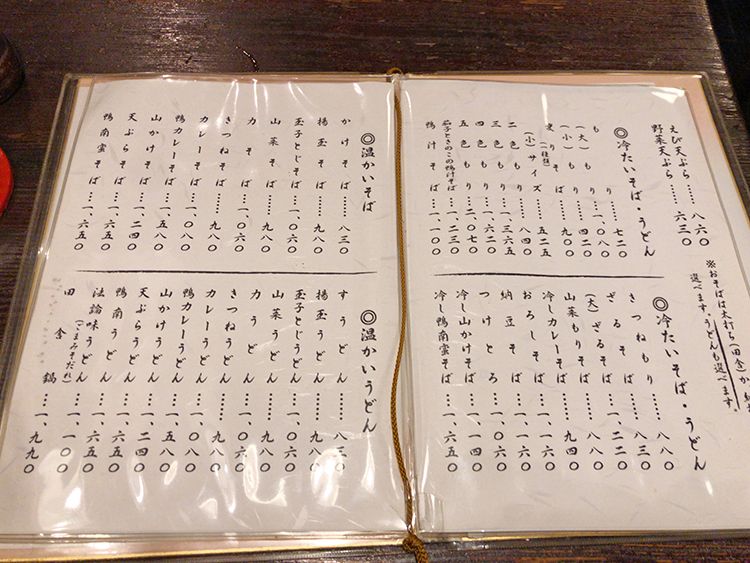 えび天ぷら……八六〇
野菜天ぷら……六三〇
※おそばは太打ち(田舎)か
選べます。うどんも選べます。
◎冷たいそば・うどん
もり……七二〇
(大)もり……一、〇八〇
(小)もり……四二〇
変りそば
(一種類)
(小)サイズ……五二五
二色もり……八四〇
三色もり……一、三六五
四色もり
五色もり……二、〇七〇
茄子ときのこの鴨汁そば……一、二三〇
鴨汁そば……一、一〇〇
◎冷たいそば・うどん
きつねもり……八八〇
ざるそば……八三〇
(大)ざるそば……一、二二〇
山菜もりそば……八八〇
冷しカレーそば……九四〇
おろしそば……一、一六〇
納豆そば
つけとろ
冷し山かけそば
冷し鴨南蛮そば……一、六五〇
◎温かいそば
かけそば……八三〇
揚玉そば……九八〇
玉子とじそば……一、〇六〇
山菜そば……九八〇
力そば……一、〇六〇
きつねそば……九八〇
カレーそば……九八〇
鴨カレーそば……一、五八〇
山かけそば……一、二四〇
天ぷらそば
鴨南蛮そば……一、六五〇
◎温かいうどん
すうどん……八三〇
揚玉うどん……九八〇
玉子とじうどん……一、〇六〇
山菜うどん……九八〇
力うどん……一、〇六〇
きつねうどん……九八〇
カレーうどん……九八〇
鴨カレーうどん……一、五八〇
山かけうどん……一、二四〇
天ぷらうどん
鴨南うどん……一、六五〇
法論味うどん……一、一〇〇
(ごまみそだれ)
田舎鍋……一、九九〇